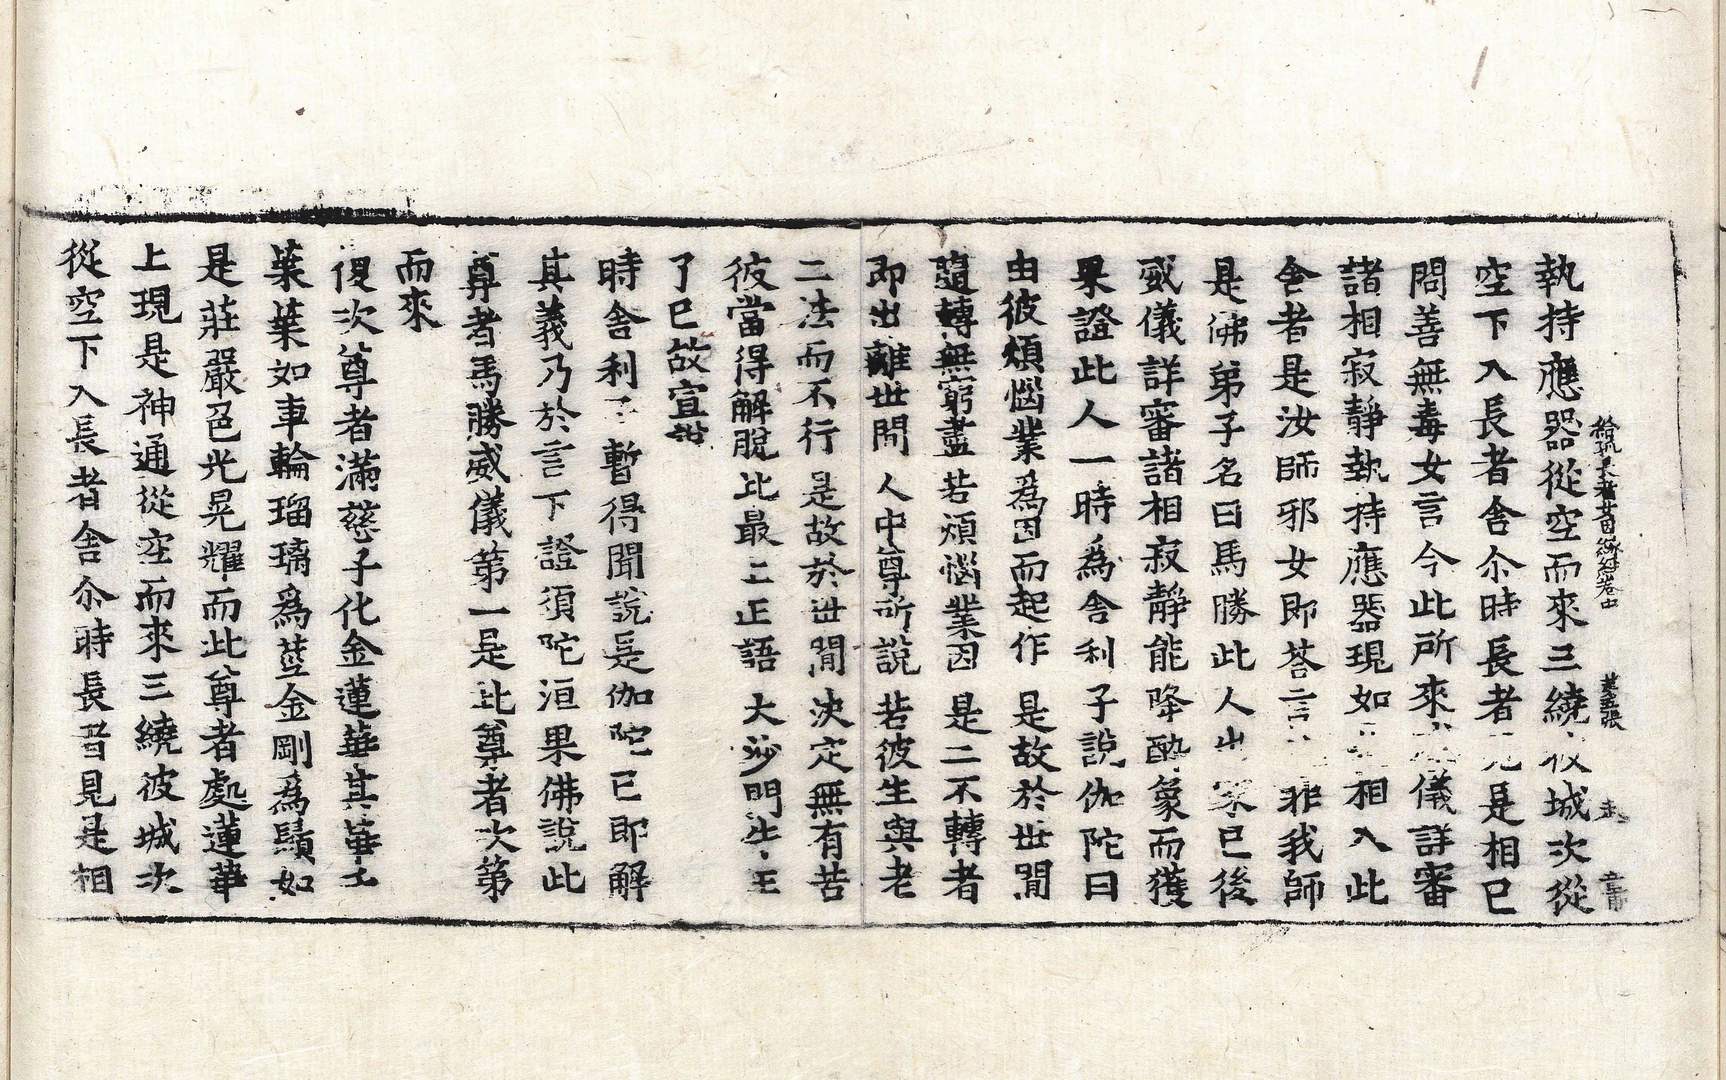 執持應器從空而來三繞彼城次從
給孤長者因緣經卷中 第五張
空下入長者舍尒時長者見是相已
問善無毒女言今此所來威儀詳審
諸相寂靜執持應器現如是相入此
舍者是汝師邪女即荅言非我師
是佛弟子名曰馬勝此人出家已後
威儀詳審諸相寂靜能降醉象而獲
果證此人一時爲舍利子說伽陀曰
由彼煩惱業爲因而起作 是故於世閒
隨轉無窮盡若煩惱業因 是二不轉者
即出離世閒 人中尊所說 若彼生與老
二法而不行 是故於世閒決定無有苦
彼當得解脫比最上正語 大沙門牛王
了已故宣說
時舍利子暫得聞說是伽陀已即解
其義乃於言下證須陀洹果佛說此
尊者馬勝威儀第一是此尊者次第
而來
復次尊者滿慈子化金蓮華其華千
葉葉如車輪瑠璃爲莖金剛爲鬚如
是莊嚴色光晃耀而此尊者處蓮華
上現是神通從空而來三繞彼城次
從空下入長者舍尒時長者見是相